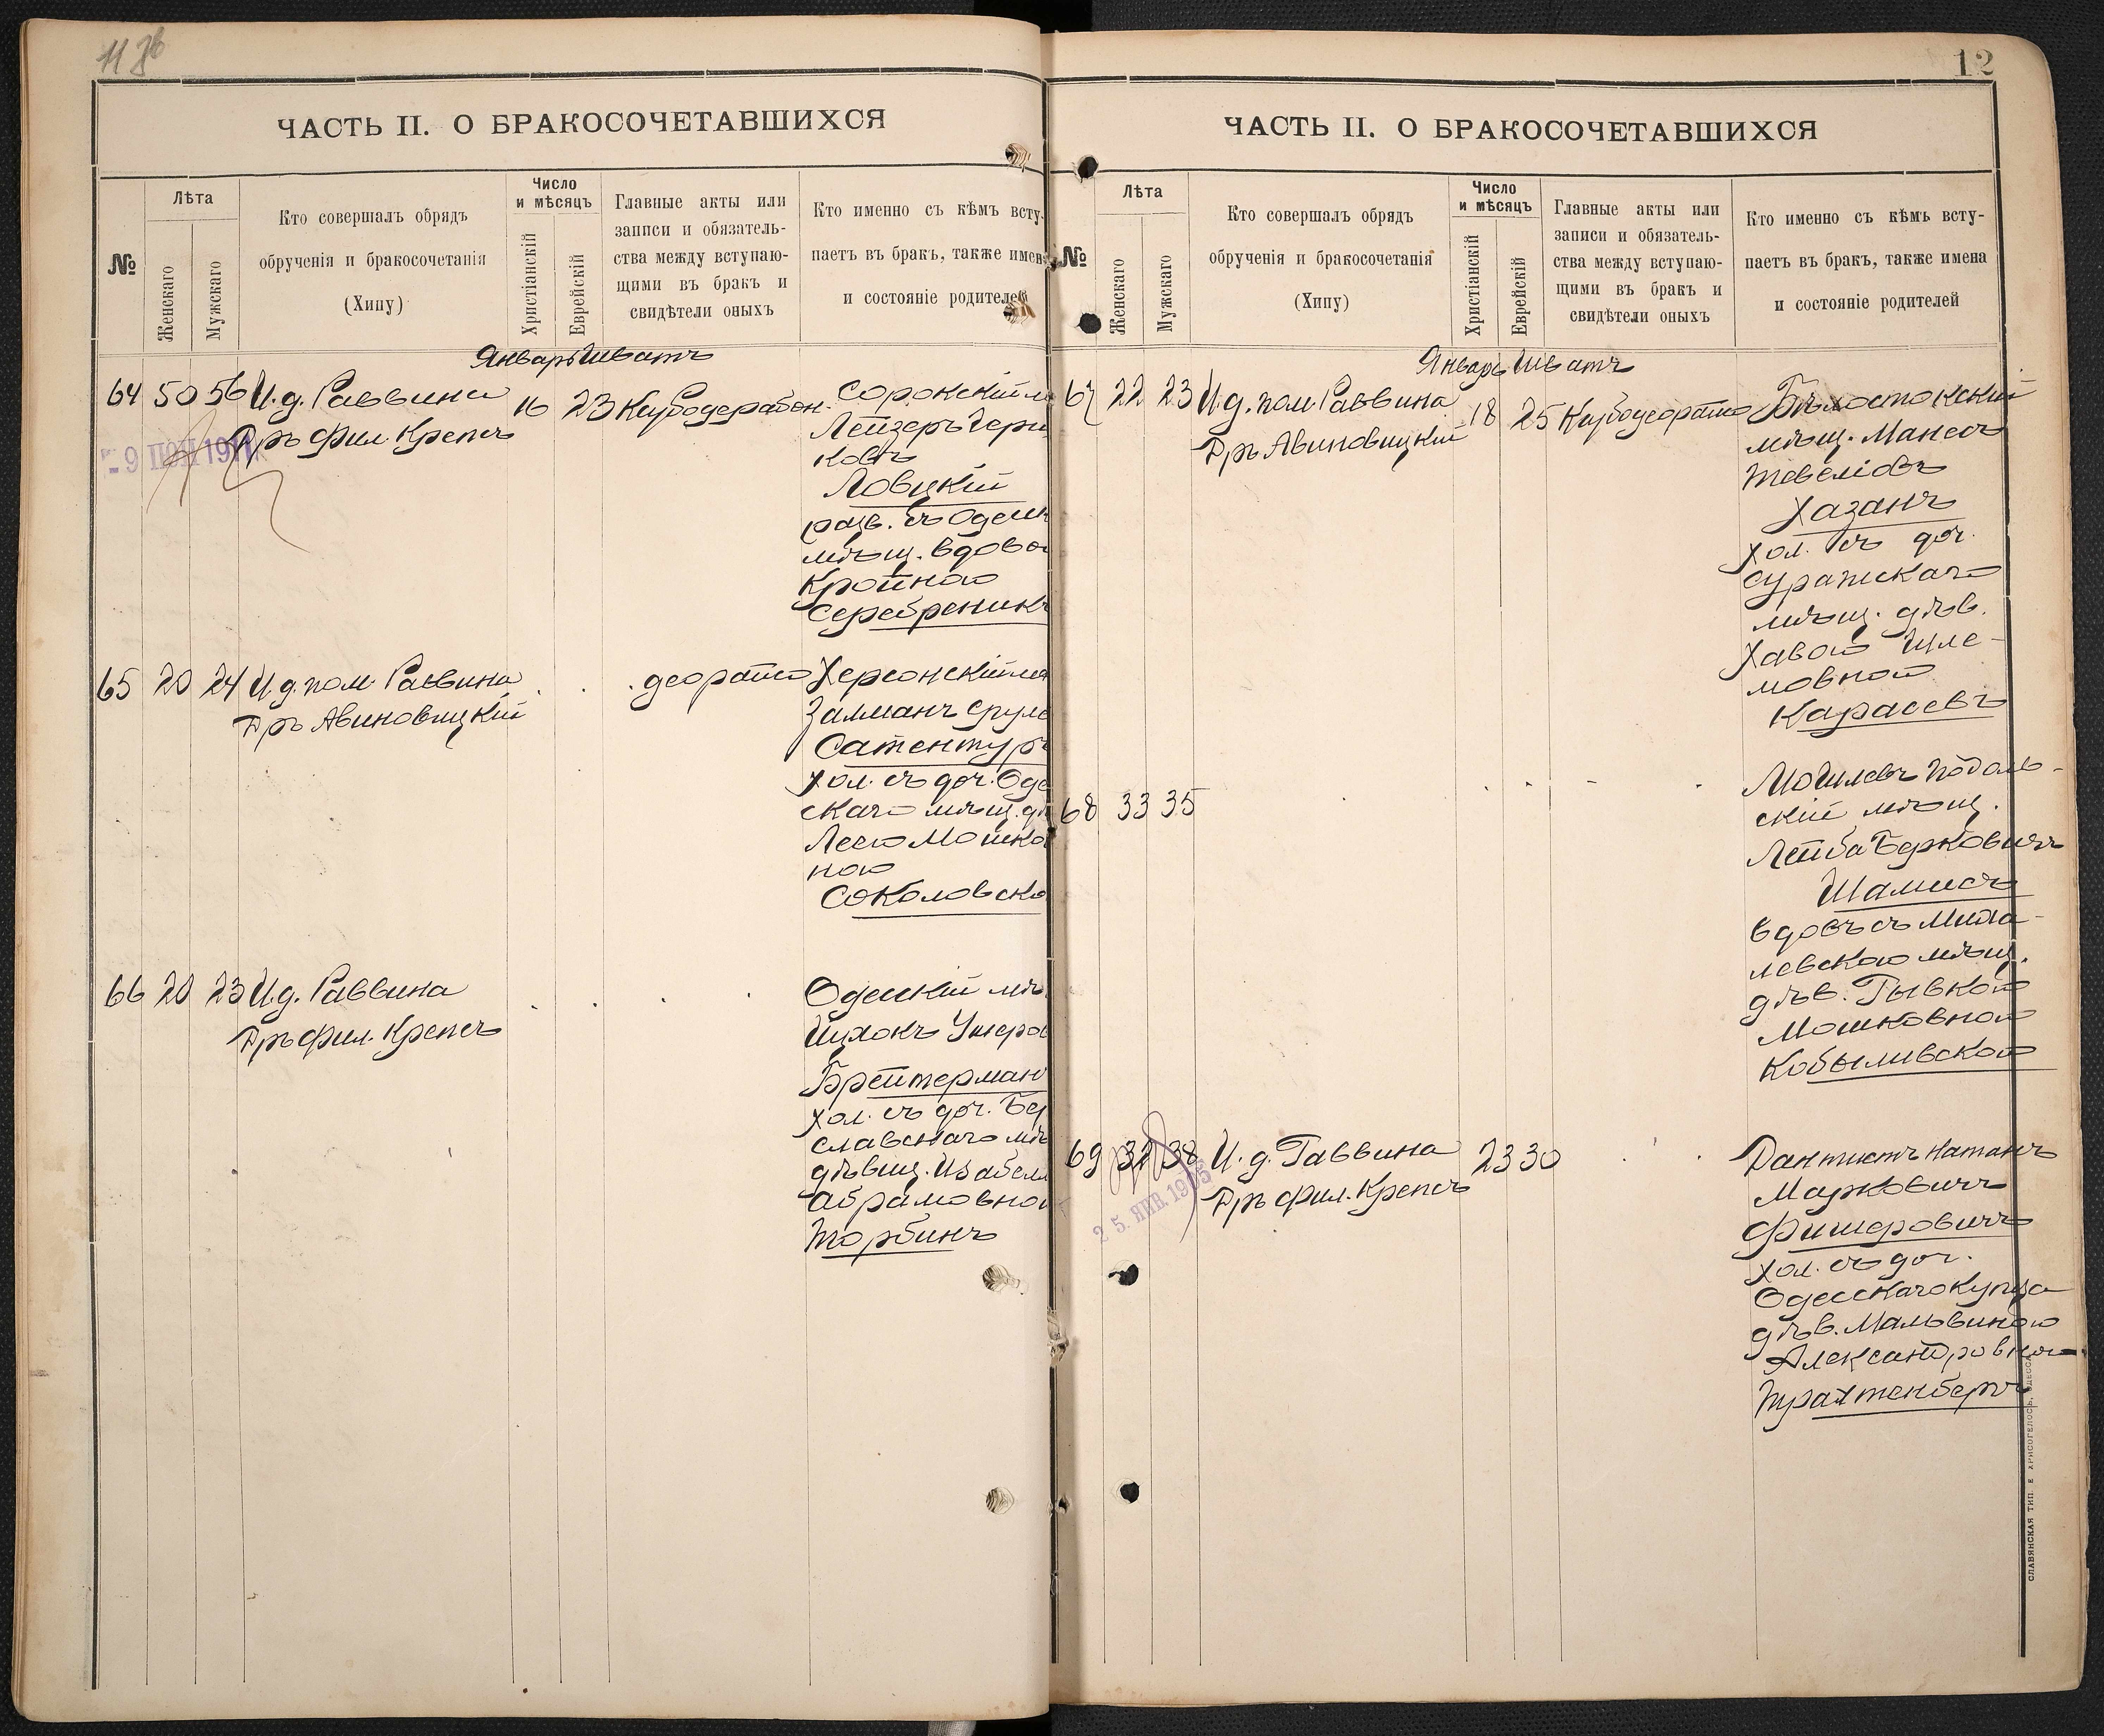 11 об
ЧАСТЬ II. О БРАКОСОЧЕТАВШИХСЯ
№
Лѣта
Женскаго
Мужскаго
Кто совершалъ обрядъ
обрученія и бракосочетанія
(Хипу)
Число
и мѣсяцъ
Христіанскій
Еврейскій
Главные акты или
записи и обязатель-
ства между вступаю-
щими въ бракъ и
свидѣтели оныхъ
Кто именно съ кѣмъ всту-
паетъ въ бракъ, также имена
и состояніе родителей
Январь Шватъ
64 50 56 И.д. Раввина 16 23
Дръ фил. Крепсъ
9 ІЮН 1911
Сорокскій м
Лейзеръ Гер
ковъ
Ловцкій
разв. съ Одесск
мѣщ. вдово
Кройною
Серебреникъ
65 20 24 И.д. пом. Раввина
Дръ Авиновицкій
деорайсо
Херсонскій м
Залманъ Сруле
Сатентуръ
хол. съ доч. Оде
скаго мѣщ. дѣ
Лесю Мошко
ною
Соколовско
66 20 23 И.д. Раввина
Дръ фил. Крепсъ
Одесскій мѣ
Ицхокъ Ушеров
Брейтерман
хол. съ доч. Бер
славскаго мѣ
дѣвиц. Изабелл
Абрамовно
Торбинъ
12
ЧАСТЬ II. О БРАКОСОЧЕТАВШИХСЯ
№
Лѣта
Женскаго
Мужскаго
Кто совершалъ обрядъ
обрученія и бракосочетанія
(Хипу)
Число
и мѣсяцъ
Христіанскій
Еврейскій
Главные акты или
записи и обязатель-
ства между вступаю-
щими въ бракъ и
свидѣтели оныхъ
Кто именно съ кѣмъ всту-
паетъ въ бракъ, также имена
и состояніе родителей
Январь Шватъ
67 22 23 И.д. пом. Раввина 18 25
Дръ Авиновицкій
Бѣлостокскій
мѣщ. Манесъ
Тевеліовъ
Хазанъ
хол. съ доч.
Суражскаго
мѣщ. дѣв.
Хавою Шле-
мовной
Карасевъ
68 33 35
Могилевъ Подоль-
скій мѣщ.
Лейба Берковичъ
Шамисъ
вдовъ съ Моги-
левскою мѣщ.
дѣв. Рывкою
Мошковною
Кобыливской
69 32 38 И.д. Раввина 23 30
Дръ фил. Крепсъ
25. ЯНВ. 19
Дантистъ Натанъ
Марковичъ
Фишеровичъ
хол. съ доч.
Одесскаго купца
дѣв. Мальвиною
Александровною
Трахтенбергъ
СЛАВЯНСКАЯ ТИП. Е ХРИСОГЕЛОСЪ, ОДЕССА